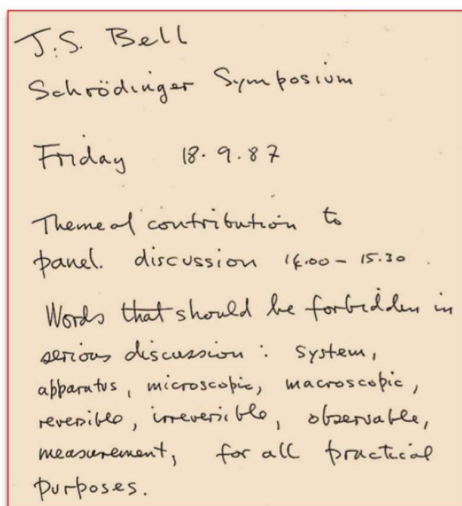 J.S. Bell
Schrödinger Symposium
Friday 18.9.87
Theme of contribution to
panel. discussion 14.00 – 15.30.
Words that should be forbidden in
serious discussion : system,
apparatus, microscopic, macroscopic,
reversible, irreversible, observable,
measurement, for all practical
purposes.